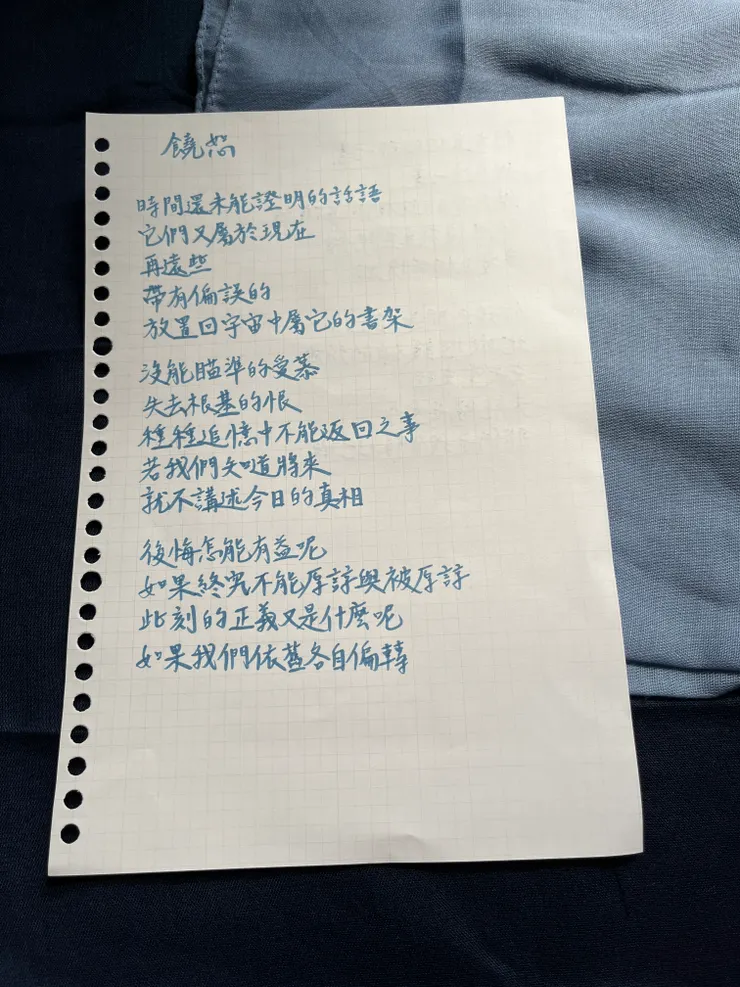 饒恕
時間還未能證明的話語
它們又屬於現在
再遠些
帶有偏誤的
放置回宇宙中屬它的書架
沒能瞄準的愛慕
失去根基的恨
種種追憶中不能返回之事
若我們知道將來
就不講述今日的真相
後悔怎能有益呢
如果終究不能原諒與被原諒
此刻的正義又是什麼呢
如果我們依舊各自偏轉